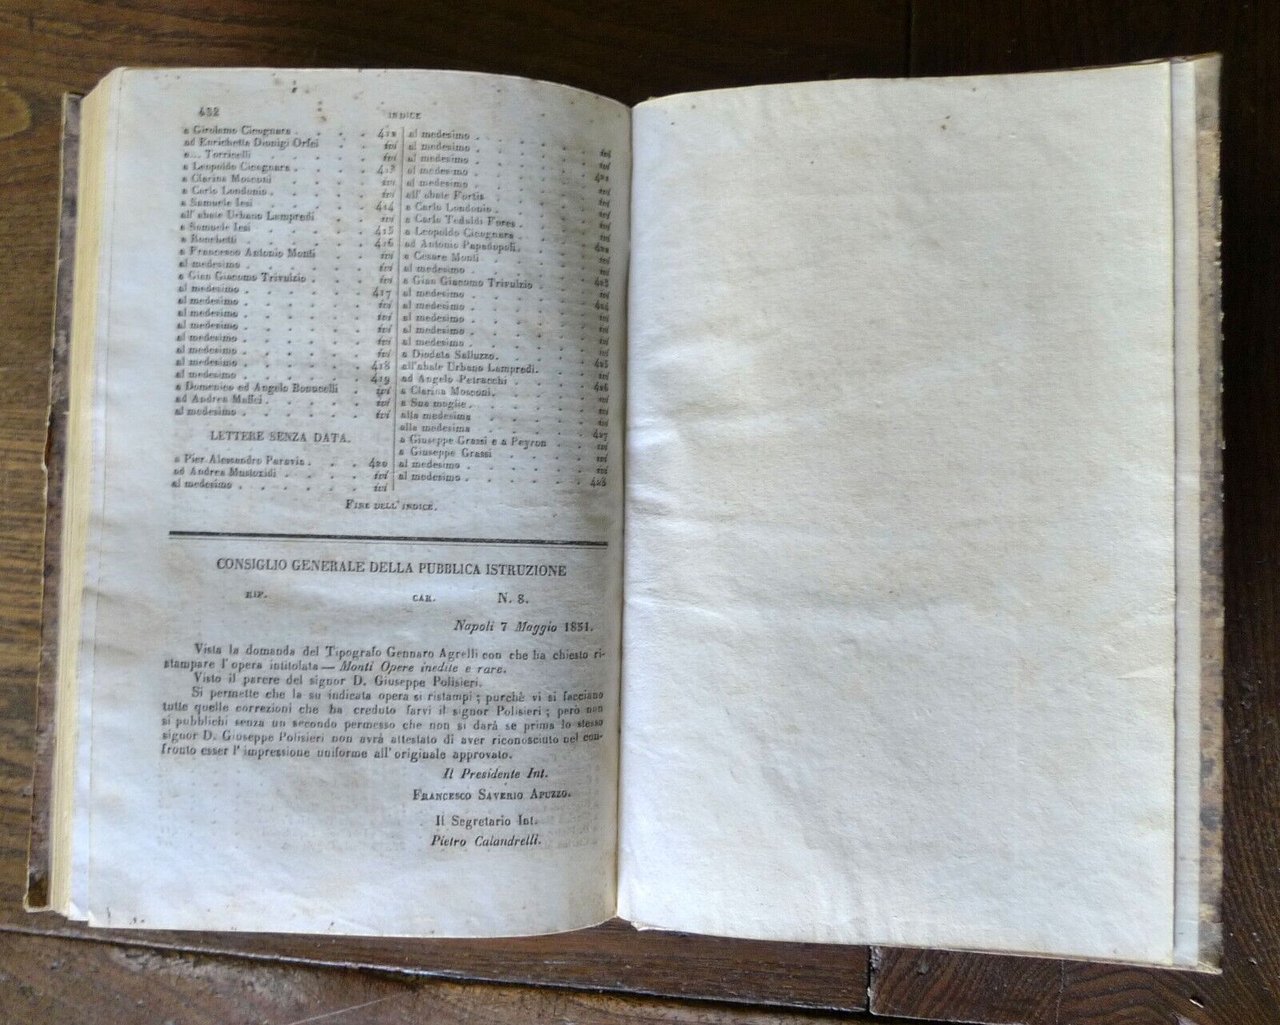 432
INDICE
a Girolamo Cicognara . . . . 412
ad Enrichetta Dionigi Orfei . . ivi
a... Torricelli . . . . . . ivi
a Leopoldo Cicognara . . . . 413
a Clarina Mosconi . . . . . ivi
a Carlo Londonio . . . . . ivi
a Samuele Iesi . . . . . . 414
all'abate Urbano Lampredi . . ivi
a Samuele Iesi . . . . . . 415
a Ronchetti . . . . . . 416
a Francesco Antonio Monti . . ivi
al medesimo . . . . . . ivi
a Gian Giacomo Trivulzio . . . ivi
al medesimo . . . . . . 417
al medesimo . . . . . . ivi
al medesimo . . . . . . ivi
al medesimo . . . . . . ivi
al medesimo . . . . . . ivi
al medesimo . . . . . . ivi
al medesimo . . . . . . 418
al medesimo . . . . . . 419
a Domenico ed Angelo Bonucelli . ivi
ad Andrea Maffei . . . . . ivi
al medesimo . . . . . . ivi
LETTERE SENZA DATA.
a Pier Alessandro Paravia . . . 420
ad Andrea Mustoxidi . . . . ivi
al medesimo . . . . . . ivi
al medesimo . . . . . .
al medesimo . . . . . . ivi
al medesimo . . . . . . ivi
al medesimo . . . . . . 421
al medesimo . . . . . . ivi
all'abate Fortis . . . . . ivi
a Carlo Londonio . . . . . ivi
a Carlo Tedaldi Fores . . . . ivi
a Leopoldo Cicognara . . . . ivi
ad Antonio Papadopoli . . . . 422
a Cesare Monti . . . . . . ivi
al medesimo . . . . . . ivi
a Gian Giacomo Trivulzio . . . 423
al medesimo . . . . . . ivi
al medesimo . . . . . . 424
al medesimo . . . . . . ivi
al medesimo . . . . . . ivi
al medesimo . . . . . . ivi
a Diodata Salluzzo . . . . . ivi
all'abate Urbano Lampredi . . . 425
ad Angelo Petracchi . . . . ivi
a Clarina Mosconi . . . . . 426
a Sua moglie . . . . . . ivi
alla medesima . . . . . . ivi
alla medesima . . . . . . ivi
a Giuseppe Grassi e a Peyron . . 427
a Giuseppe Grassi . . . . . ivi
al medesimo . . . . . . ivi
al medesimo . . . . . . 428
FINE DELL'INDICE.
CONSIGLIO GENERALE DELLA PUBBLICA ISTRUZIONE
RIP. CAR. N. 8.
Napoli 7 Maggio 1831.
Vista la domanda del Tipografo Gennaro Agrelli con che ha chiesto ri-
stampare l'opera intitolata — Monti Opere inedite e rare.
Visto il parere del signor D. Giuseppe Polisieri.
Si permette che la su indicata opera si ristampi ; purchè vi si facciano
tutte quelle correzioni che ha creduto farvi il signor Polisieri ; però non
si pubblichi senza un secondo permesso che non si darà se prima lo stesso
signor D. Giuseppe Polisieri non avrà attestato di aver riconosciuto nel con-
fronto esser l'impressione uniforme all'originale approvato.
Il Presidente Int.
FRANCESCO SAVERIO APUZZO.
Il Segretario Int.
Pietro Calandrelli.